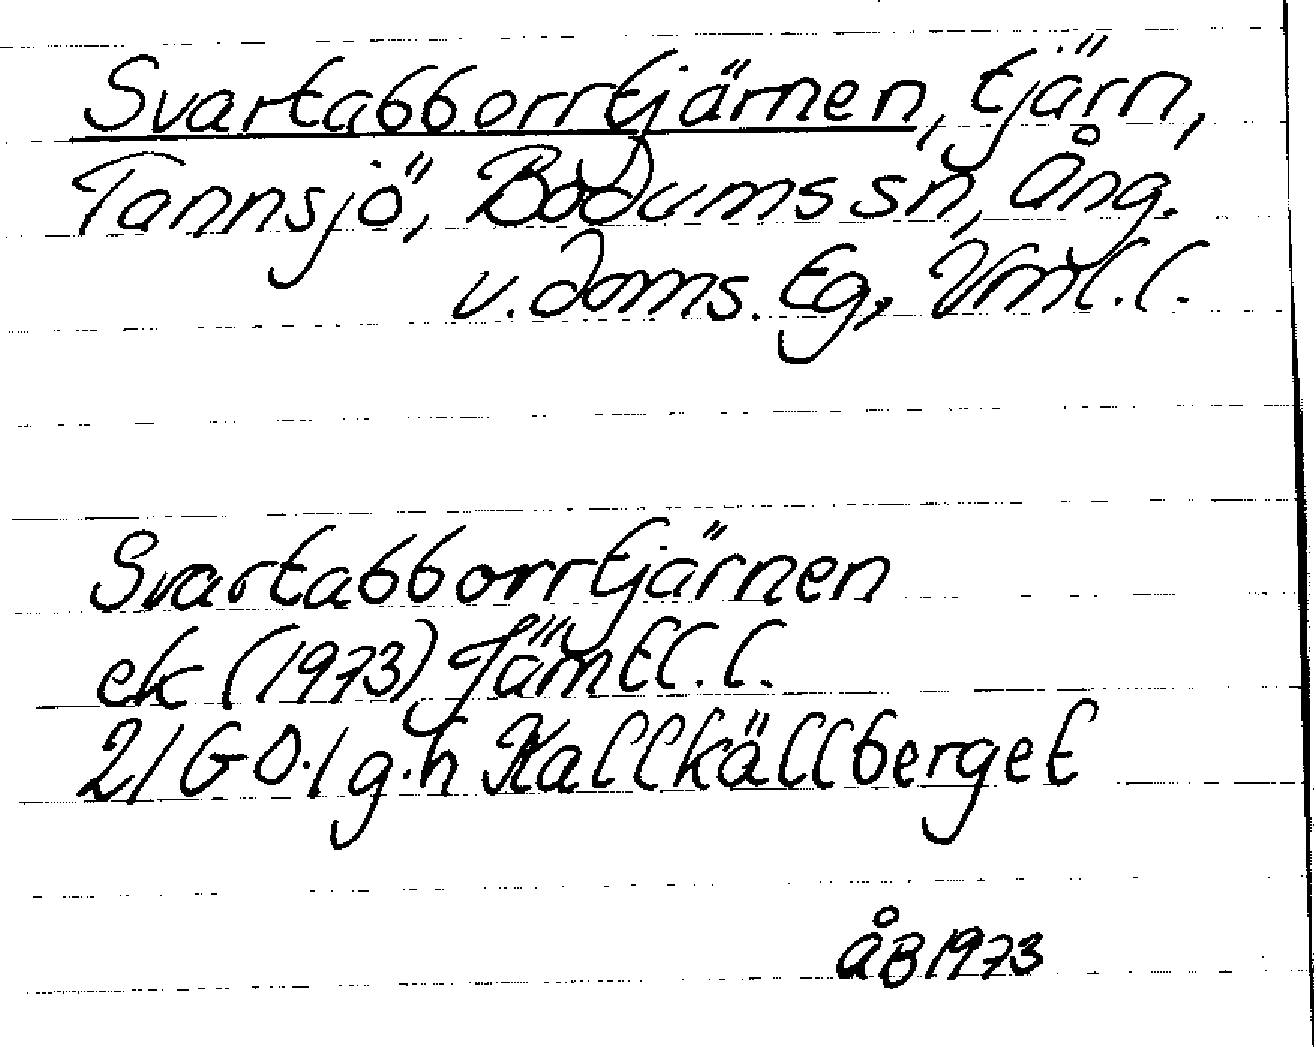 Svartabborrtjärnen, tjärn,
Tannsjö, Bodums sn, Ång.
v. doms. tg, Vrnl. l.
Svartabborrtjärnen
ek (1973) Jämtl. l.
21 G O.1 g.h Kallkällberget
åB 1973